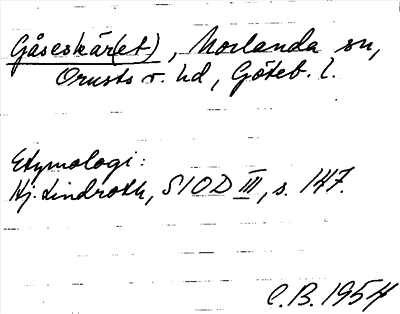 Gåseskär(et), Morlanda sn,
Orusts v. hd, Göteb. l.
Etymologi:
Hj. Lindroth, SIOD III, s. 147.
C.B. 1954